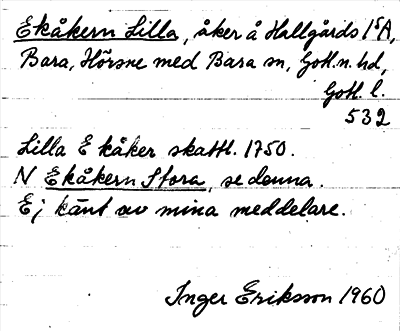 Ekåkern Lilla, åker å Hallgårds 1⁵A,
Bara, Hörsne med Bara sn, Gotl. n. hd,
Gotl. l.
532
Lilla E kåker skattl. 1750.
N Ekåkern Stora, se denna.
Ej känt av mina meddelare.
Inger Eriksson 1960